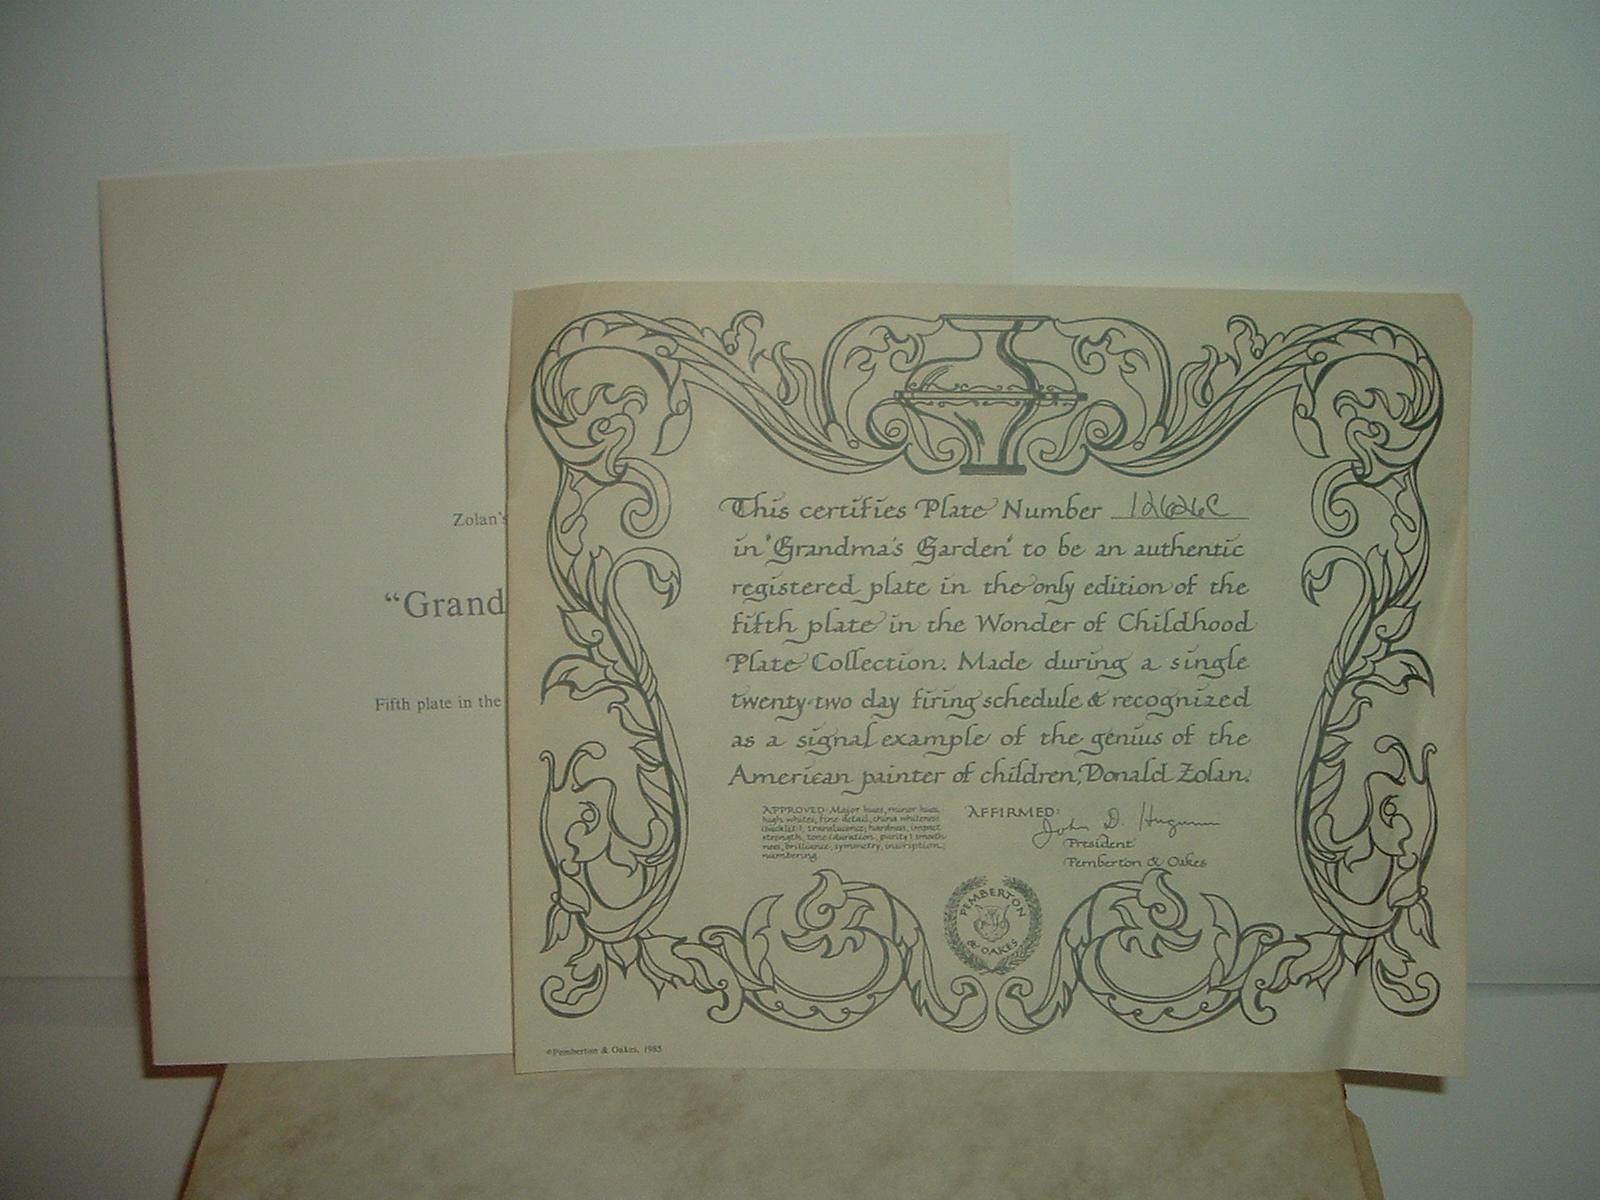 Zolan's
"Grand
Fifth plate in the
This certifies Plate Number 12626C
in 'Grandma's Garden' to be an authentic
registered plate in the only edition of the
fifth plate in the Wonder of Childhood
Plate Collection. Made during a single
twenty-two day firing schedule & recognized
as a signal example of the genius of the
American painter of children, Donald Zolan.
APPROVED: Major hues, minor hues,
high whites, fine detail, china whiteness
(backlit), translucence, hardness, impact
strength, tone (duration, purity) smooth-
ness, brilliance, symmetry, inscription,
numbering.
AFFIRMED:
John D. Hugunin
President
Pemberton & Oakes
PEMBERTON
& OAKES
©Pemberton & Oakes, 1985